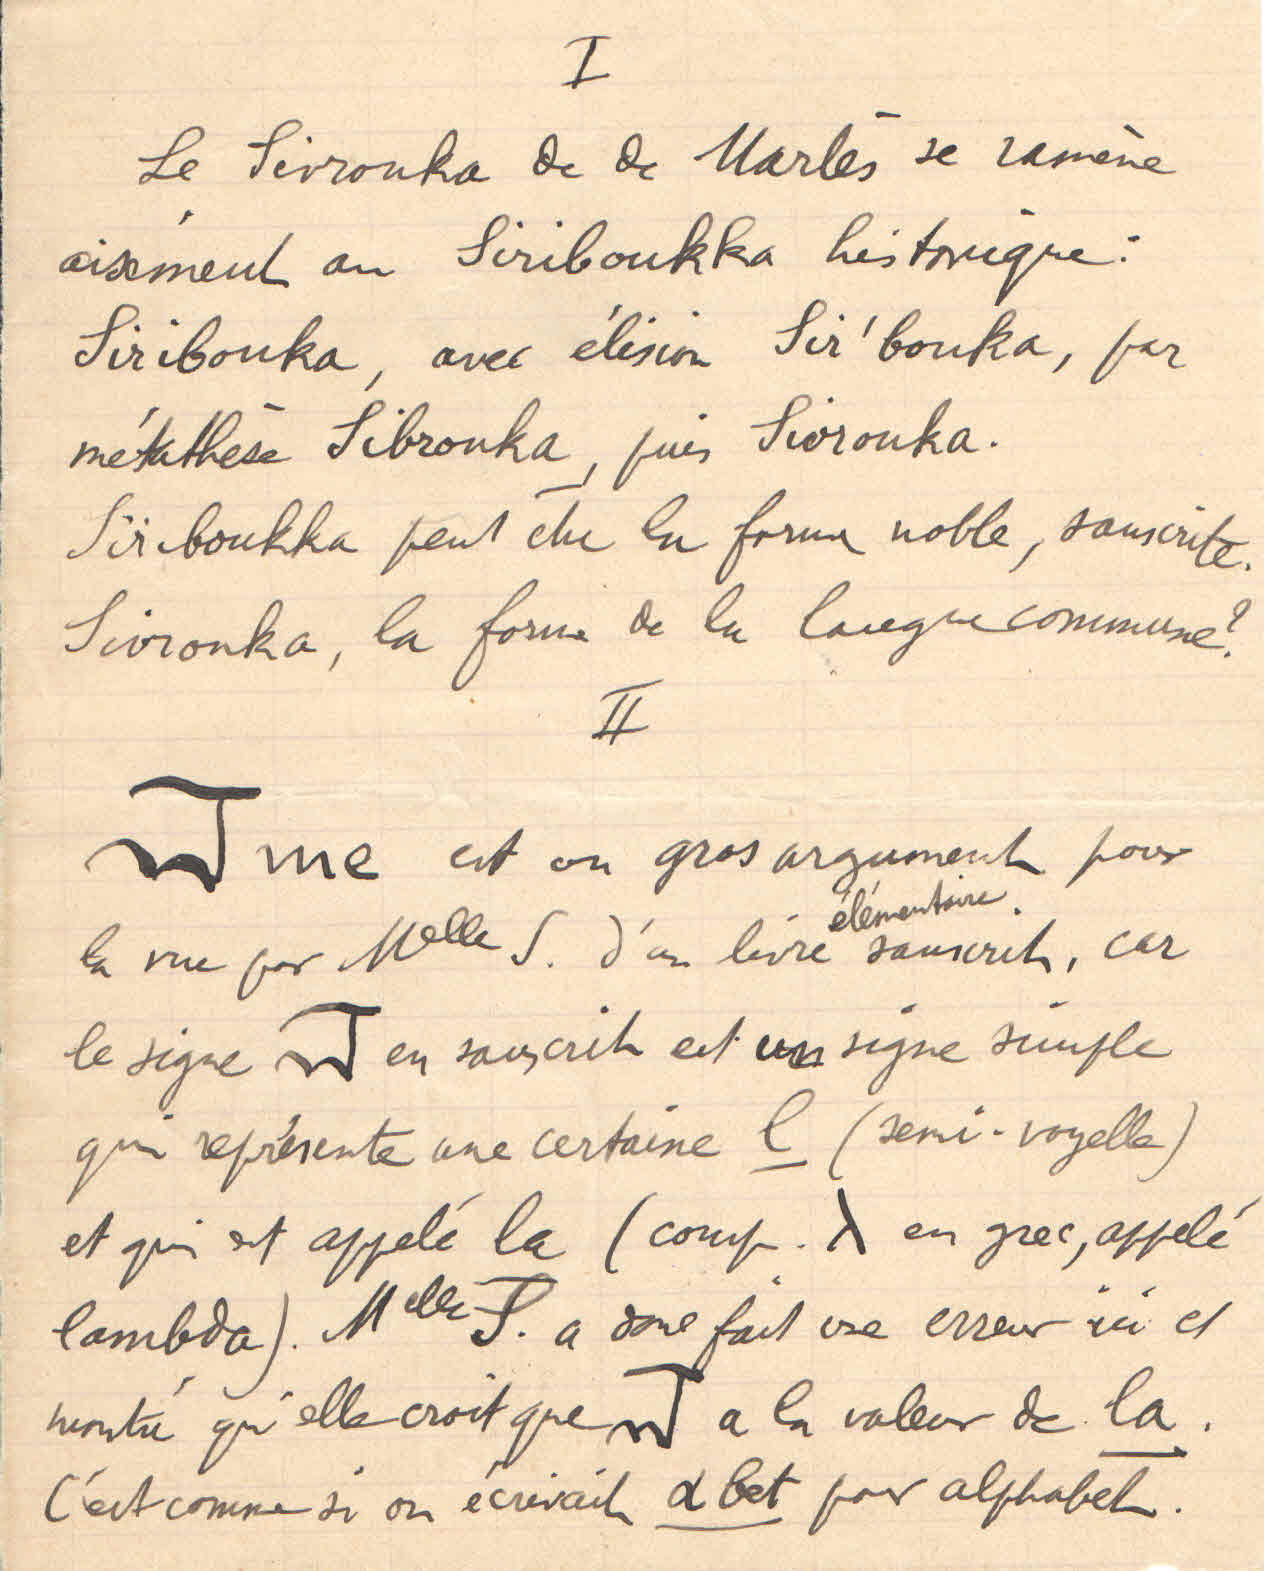 I
Le Sivrouka de de Marlès se ramène
aisément au Siriboukka historique:
Siribouka, avec élision Sir'bouka, par
métathèse Sibrouka, puis Sivrouka.
Siriboukka peut être la forme noble, sanscrite.
Sivrouka, la forme de la langue commune?
II
ल me est un gros argument pour
la vue par Melle S. d'un livre élémentaire sanscrit, car
le signe ल en sanscrit est un signe simple
qui représente une certaine l (semi-voyelle)
et qui est appelé la (comp. λ en grec, appelé
lambda). Melle S. a donc fait une erreur ici et
montré qu'elle croit que ल a la valeur de la.
C'est comme si on écrivait αbet pour alphabet.